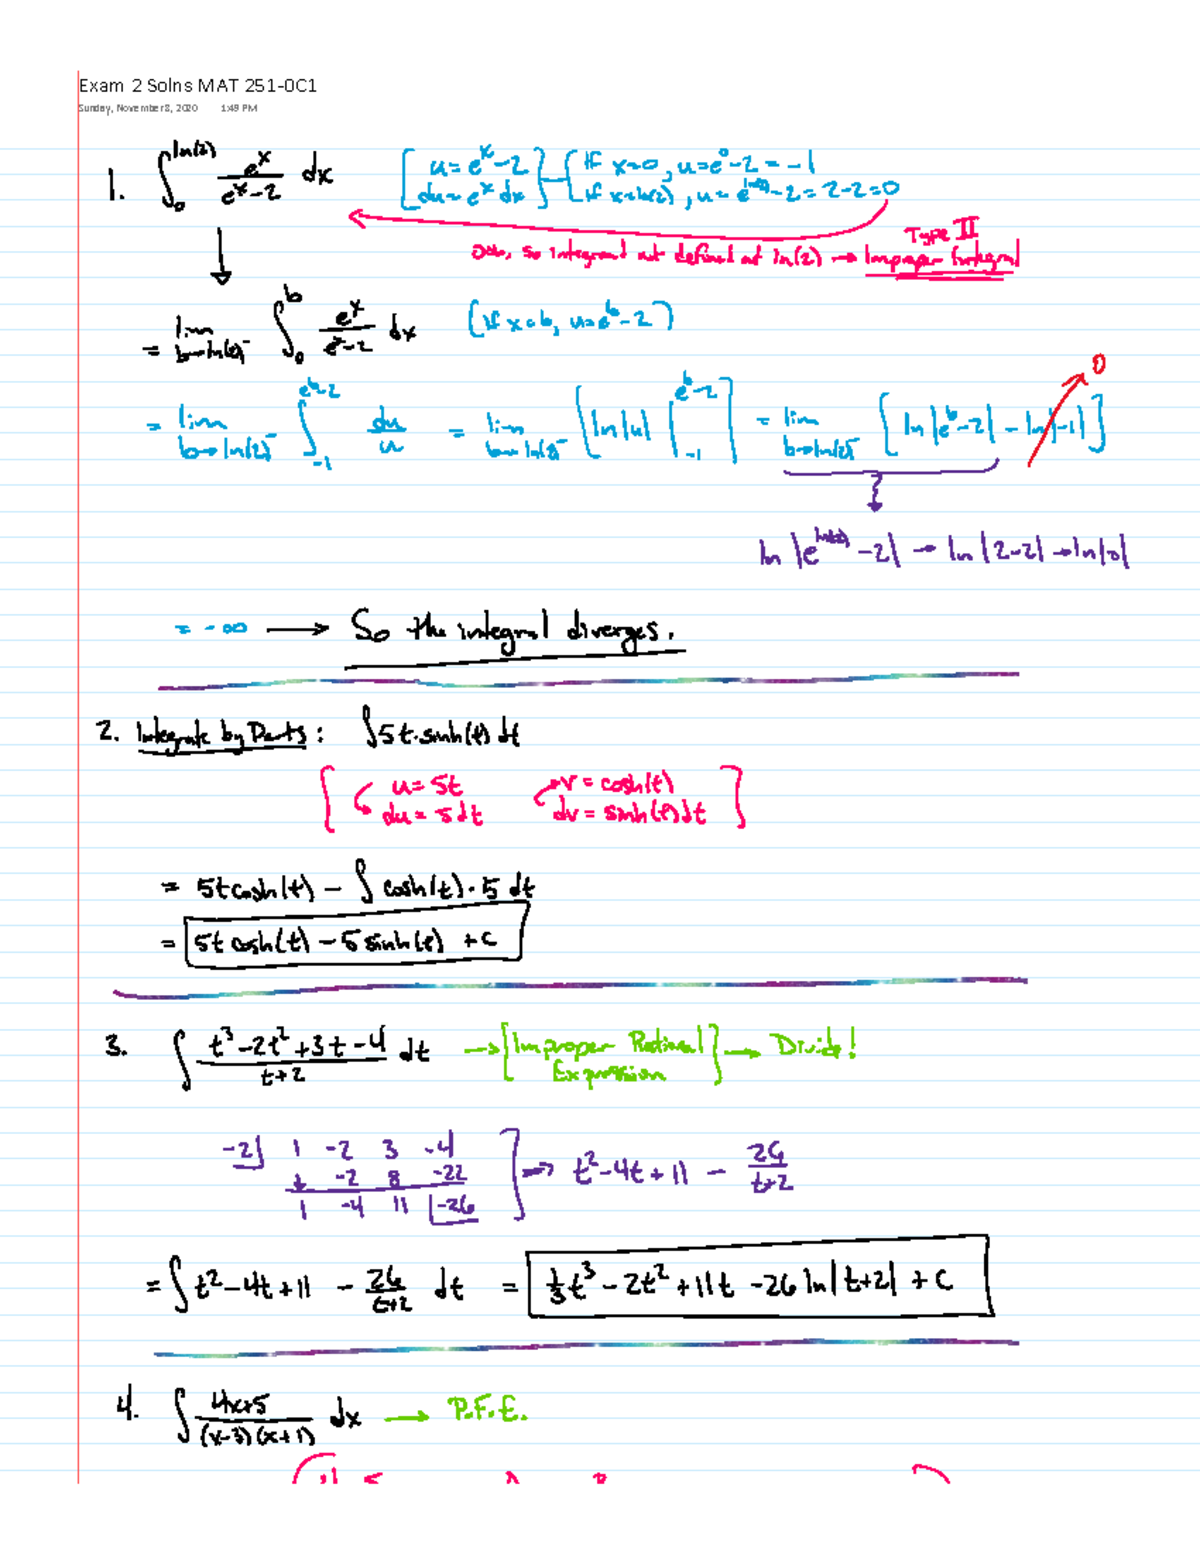 Exam 2 Solns MAT 251-0C1
Sunday, November 8, 2020 1:49 PM
1. ∫₀^ln(2) e^x/(e^x-2) dx [u=e^x-2 du=e^x dx] [If x=0, u=e^0-2=-1
If x=ln(2), u=e^ln(2)-2=2-2=0
Type II
so integrand not defined at ln(2) → Improper Integral
= lim b→ln(2)⁻ ∫₀^b e^x/(e^x-2) dx (If x=b, u=e^b-2)
= lim b→ln(2)⁻ ∫₋₁^(e^b-2) du/u = lim b→ln(2)⁻ [ln|u| |₋₁^(e^b-2)] = lim b→ln(2)⁻ [ln|e^b-2| - ln|-1|] 0
ln|e^ln(2)-2| → ln|2-2| → ln|0|
= -∞ → So the integral diverges.
2. Integrate by Parts: ∫5t·sinh(t) dt
[u=5t v=cosh(t)]
[du=5dt dv=sinh(t)dt]
= 5tcosh(t) - ∫cosh(t)·5 dt
= 5t cosh(t) - 5 sinh(t) + C
3. ∫ (t³-2t²+3t-4)/(t+2) dt → [Improper Rational Expression] → Divide!
-2⌋ 1 -2 3 -4
↓ -2 8 -22
1 -4 11 ⌊-26
⇒ t²-4t+11 - 26/(t+2)
= ∫t²-4t+11 - 26/(t+2) dt = ⅓t³ - 2t² + 11t - 26 ln|t+2| + C
4. ∫ (4x+5)/((x-3)(x+1)) dx → P.F.E.